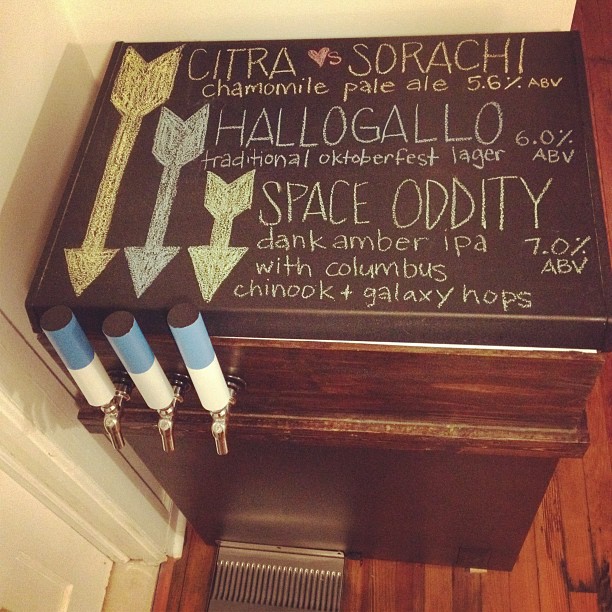 CITRA ♥s SORACHI
chamomile pale ale 5.6% ABV
HALLOGALLO
traditional oktoberfest lager 6.0% ABV
SPACE ODDITY
dank amber ipa 7.0% ABV
with columbus
chinook + galaxy hops